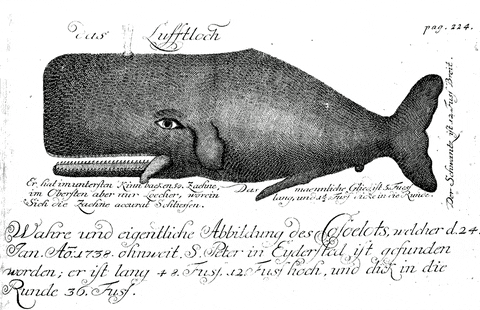 das Lufftloch
pag. 224.
Der Schwantz ist 12 Fuß Breit.
Er hat im untersten Kinnbacken 50. Zaehne,
im Obersten aber nur Loecher, worein
Sich die Zaehne accurat Schliessen.
Das maennliche Glied ist 5 Fuss
lang, und 1½ Fuss dicke in die Runde.
Wahre und eigentliche Abbildung des Cascelots, welcher d. 24.
Jan. Ao. 1738. ohnweit S. Peter in Eyderstat ist gefunden
worden; er ist lang 48. Fuss. 12. Fuss hoch, und dick in die
Runde 36. Fuss.